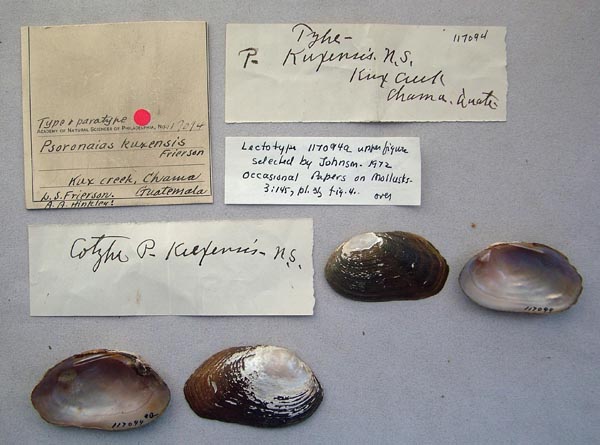 Type & paratype
ACADEMY OF NATURAL SCIENCES OF PHILADELPHIA, No. 117094
Psoronaias kuxensis
Frierson
Kux creek, Chama
Guatemala
L. S. Frierson.
A. A. Hinkley!
117094
Type-
P- Kuxensis. N.S.
Kux creek
Chama. Guate
Lectotype 117094a upper figure
selected by Johnson. 1972
Occasional Papers on Mollusks.
3:145, pl. 93 fig. 4.
over
Cotype P- Kuxensis- N.S.
117094
117094 a